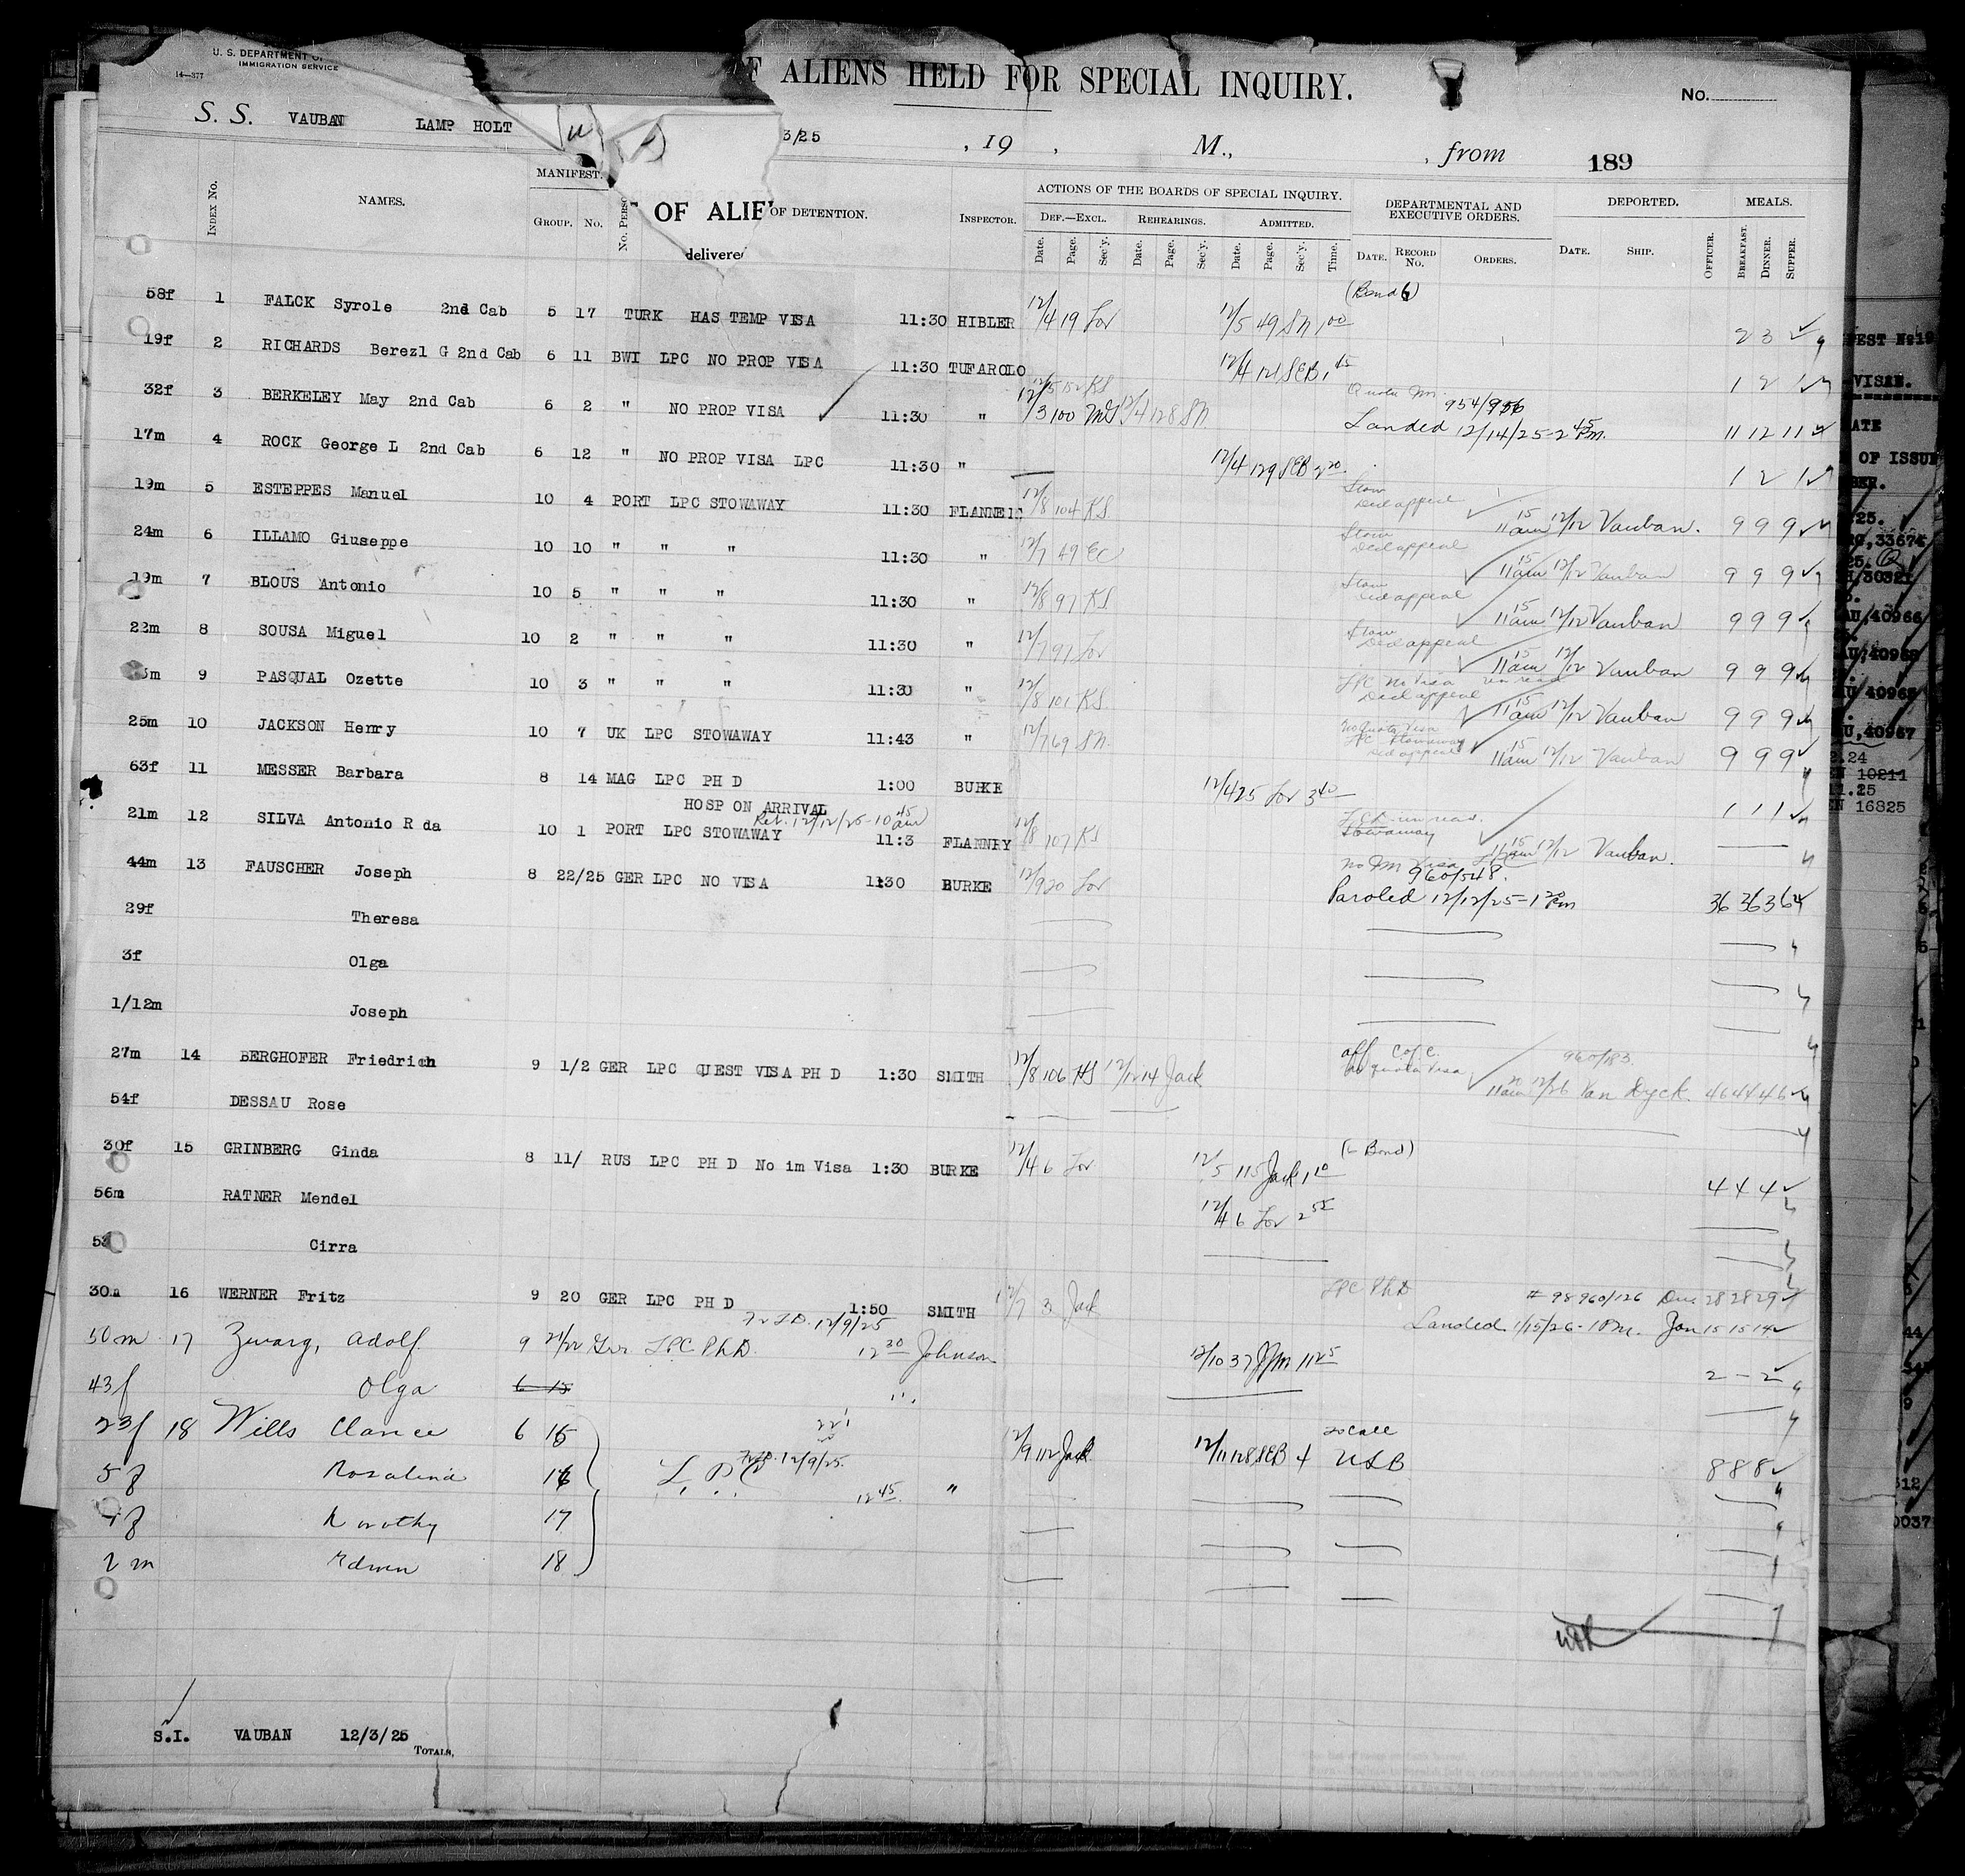 U. S. DEPARTMENT
IMMIGRATION SERVICE
14—377
F ALIENS HELD FOR SPECIAL INQUIRY.
No.
S. S. VAUBAN LAMP HOLT
3/25 , 19 , M., , from 189
Index No. NAMES. MANIFEST. Group. No. No. Perso OF ALIE OF DETENTION. delivere INSPECTOR.
ACTIONS OF THE BOARDS OF SPECIAL INQUIRY. Def.—Excl. Rehearings. Admitted.
Date. Page. Sec'y. Date. Page. Sec'y. Date. Page. Sec'y. Time.
DEPARTMENTAL AND EXECUTIVE ORDERS. Date. Record No. Orders.
DEPORTED. Date. Ship. Officer. MEALS. Breakfast. Dinner. Supper.
58f 1 FALCK Syrole 2nd Cab 5 17 TURK HAS TEMP VISA 11:30 HIBLER 12/4 19 Lor 12/5 49 SN 1 00 (Bond) 2 3 2
19f 2 RICHARDS Berezl G 2nd Cab 6 11 BWI LPC NO PROP VISA 11:30 TUFAROLO 12/4 121 SEB 1 45 1 2 1
12/5 152 KS
32f 3 BERKELEY May 2nd Cab 6 2 " NO PROP VISA 11:30 " 12/3 100 12/4 128 SN Quota 954/956
Landed 12/14/25-2 45 Pm. 11 12 11
17m 4 ROCK George L 2nd Cab 6 12 " NO PROP VISA LPC 11:30 " 12/4 129 SEB 2 20 1 2 1
19m 5 ESTEPPES Manuel 10 4 PORT LPC STOWAWAY 11:30 12/8 104 KS Stow Ded appeal 11 15 am 12/12 Vauban. 9 9 9
24m 6 ILLAMO Giuseppe 10 10 " " " 11:30 " 12/7 49 EC Stow Ded appeal 11 15 am 12/12 Vauban 9 9 9
19m 7 BLOUS Antonio 10 5 " " " 11:30 " 12/8 97 KS Stow Ded appeal 11 15 am 12/12 Vauban 9 9 9
22m 8 SOUSA Miguel 10 2 " " " 11:30 " 12/7 91 Lor Stow Ded appeal 11 15 am 12/12 Vauban 9 9 9
m 9 PASQUAL Ozette 10 3 " " " 11:30 " 12/8 101 KS LPC No Visa Ded appeal 11 15 am 12/12 Vauban 9 9 9
25m 10 JACKSON Henry 10 7 UK LPC STOWAWAY 11:43 " 12/7 69 SN. No Quota Visa LPC Stowaway Ded appeal 11 15 am 12/12 Vauban 9 9 9
63f 11 MESSER Barbara 8 14 MAG LPC PH D 1:00 BURKE 12/4 25 Lor 3 40 1 1 1
HOSP ON ARRIVAL
Rel. 12/12/25-10 45 am
21m 12 SILVA Antonio R da 10 1 PORT LPC STOWAWAY 11:3 FLANNRY 12/8 107 KS Stowaway 11 15 am 12/12 Vauban.
44m 13 FAUSCHER Joseph 8 22/25 GER LPC NO VISA 1:30 BURKE 12/9 20 Lor No Im Visa LPC 960/548.
Paroled 12/12/25-1 20 Pm 36 36 36
29f Theresa
3f Olga
1/12m Joseph
27m 14 BERGHOFER Friedrich 9 1/2 GER LPC QUEST VISA PH D 1:30 SMITH 12/8 106 HS 12/12 14 Jack aff C of C. No quota Visa 960/183. 11 20 am 12/26 Van Dyck. 46 44 46
54f DESSAU Rose
30f 15 GRINBERG Ginda 8 11/ RUS LPC PH D No im Visa 1:30 BURKE 12/4 6 Lor 12/5 115 Jack 1 10 (Bond) 4 4 4
56m RATNER Mendel 12/4 6 Lor 2 55
53 Cirra
30m 16 WERNER Fritz 9 20 GER LPC PH D 1:50 SMITH 12/7 3 Jack LPC PhD # 98 960/126 Dec 28 28 29
Fr T.D. 12/9/25 Landed 1/15/26-1 Pm. Jan 15 15 14
50m 17 Zwarg, Adolf 9 21/22 Ger LPC PhD. 12 30 Johnson 12/10 37 11 25 2 - 2
43f Olga 6 15 "
23f 18 Wills Clarice 6 15 12/9 112 Jack 12/11 128 SEB 4 to call USB 8 8 8
5f Rosalind 16 L.P.C T.D. 12/9/25. 12 45 "
4f Dorothy 17
2m Edwin 18
S.I. VAUBAN 12/3/25
Totals.
EST No 19
VISAE.
ATE
OF ISSUE
BER.
25.
33674
30321
AU,40966
AU,40968
AU 40965
U,40967
2.24
EN 10211
11.25
EN 16825